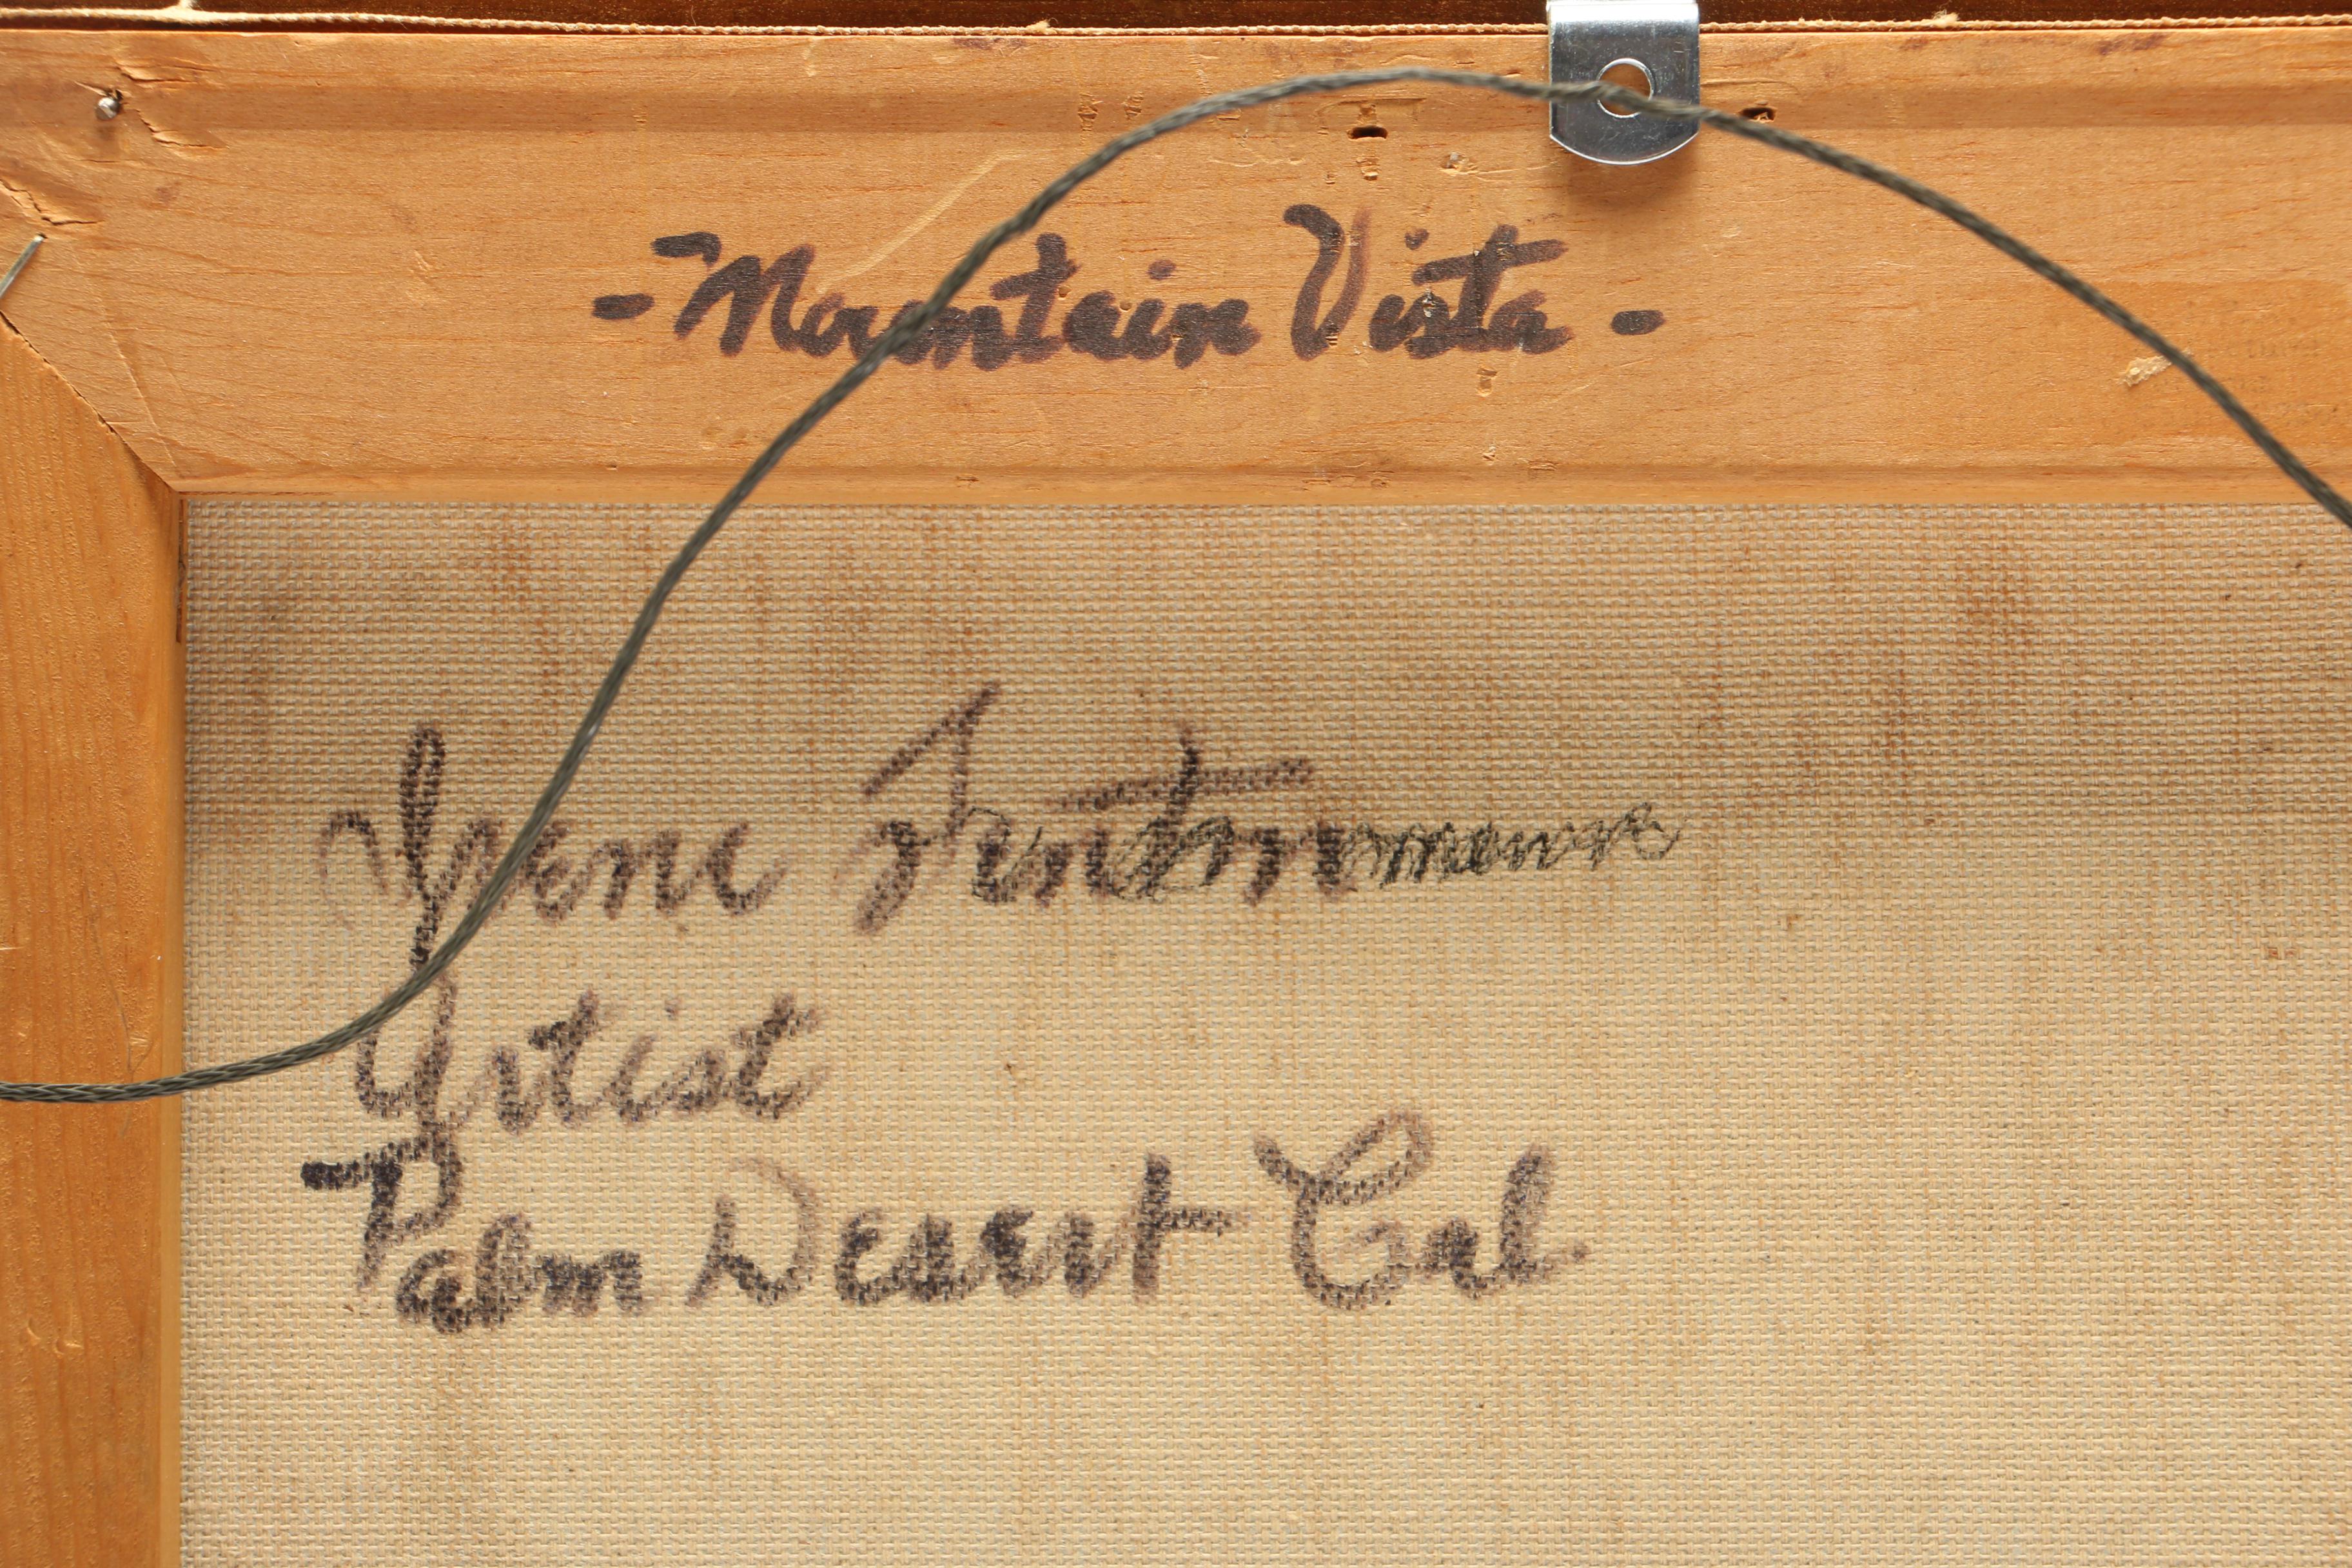 - Mountain Vista -
Irene Fenton
Artist
Palm Desert Cal